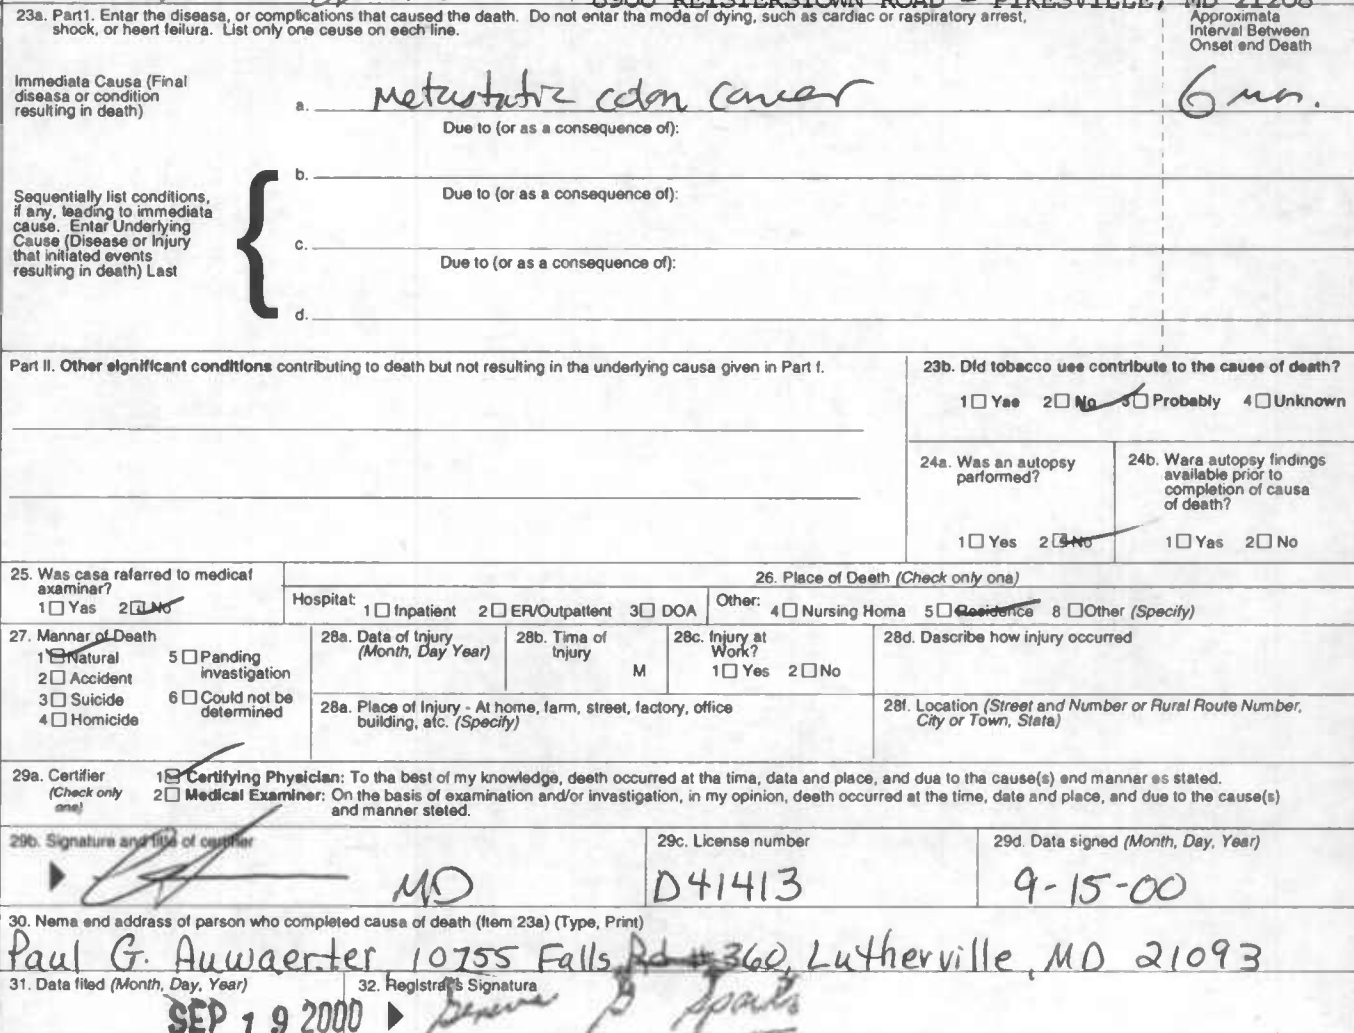 8900 REISTERSTOWN ROAD - PIKESVILLE, MD 21208
23a. Part1. Enter the disease, or complications that caused the death. Do not enter the mode of dying, such as cardiac or respiratory arrest, shock, or heart failure. List only one cause on each line.
Approximate Interval Between Onset and Death
Immediate Cause (Final disease or condition resulting in death)
a. Metastatic colon cancer
6 mos.
Due to (or as a consequence of):
Sequentially list conditions, if any, leading to immediate cause. Enter Underlying Cause (Disease or Injury that initiated events resulting in death) Last
b.
Due to (or as a consequence of):
c.
Due to (or as a consequence of):
d.
Part II. Other significant conditions contributing to death but not resulting in the underlying cause given in Part I.
23b. Did tobacco use contribute to the cause of death?
1☐ Yes 2☐ No 3☐ Probably 4☐ Unknown
24a. Was an autopsy performed?
1☐ Yes 2☐ No
24b. Were autopsy findings available prior to completion of cause of death?
1☐ Yes 2☐ No
25. Was case referred to medical examiner?
1☐ Yes 2☐ No
26. Place of Death (Check only one)
Hospital: 1☐ Inpatient 2☐ ER/Outpatient 3☐ DOA Other: 4☐ Nursing Home 5☐ Residence 8 ☐ Other (Specify)
27. Manner of Death
1☐ Natural 5☐ Pending investigation
2☐ Accident
3☐ Suicide 6☐ Could not be determined
4☐ Homicide
28a. Date of Injury (Month, Day Year)
28b. Time of Injury
M
28c. Injury at Work?
1☐ Yes 2☐ No
28d. Describe how injury occurred
28e. Place of Injury - At home, farm, street, factory, office building, etc. (Specify)
28f. Location (Street and Number or Rural Route Number, City or Town, State)
29a. Certifier (Check only one)
1☐ Certifying Physician: To the best of my knowledge, death occurred at the time, date and place, and due to the cause(s) and manner as stated.
2☐ Medical Examiner: On the basis of examination and/or investigation, in my opinion, death occurred at the time, date and place, and due to the cause(s) and manner stated.
29b. Signature and title of certifier
MD
29c. License number
D41413
29d. Date signed (Month, Day, Year)
9-15-00
30. Name and address of person who completed cause of death (Item 23a) (Type, Print)
Paul G. Auwaerter 10755 Falls Rd #360, Lutherville, MD 21093
31. Date filed (Month, Day, Year)
SEP 19 2000
32. Registrar's Signature
Geneva G Sparks